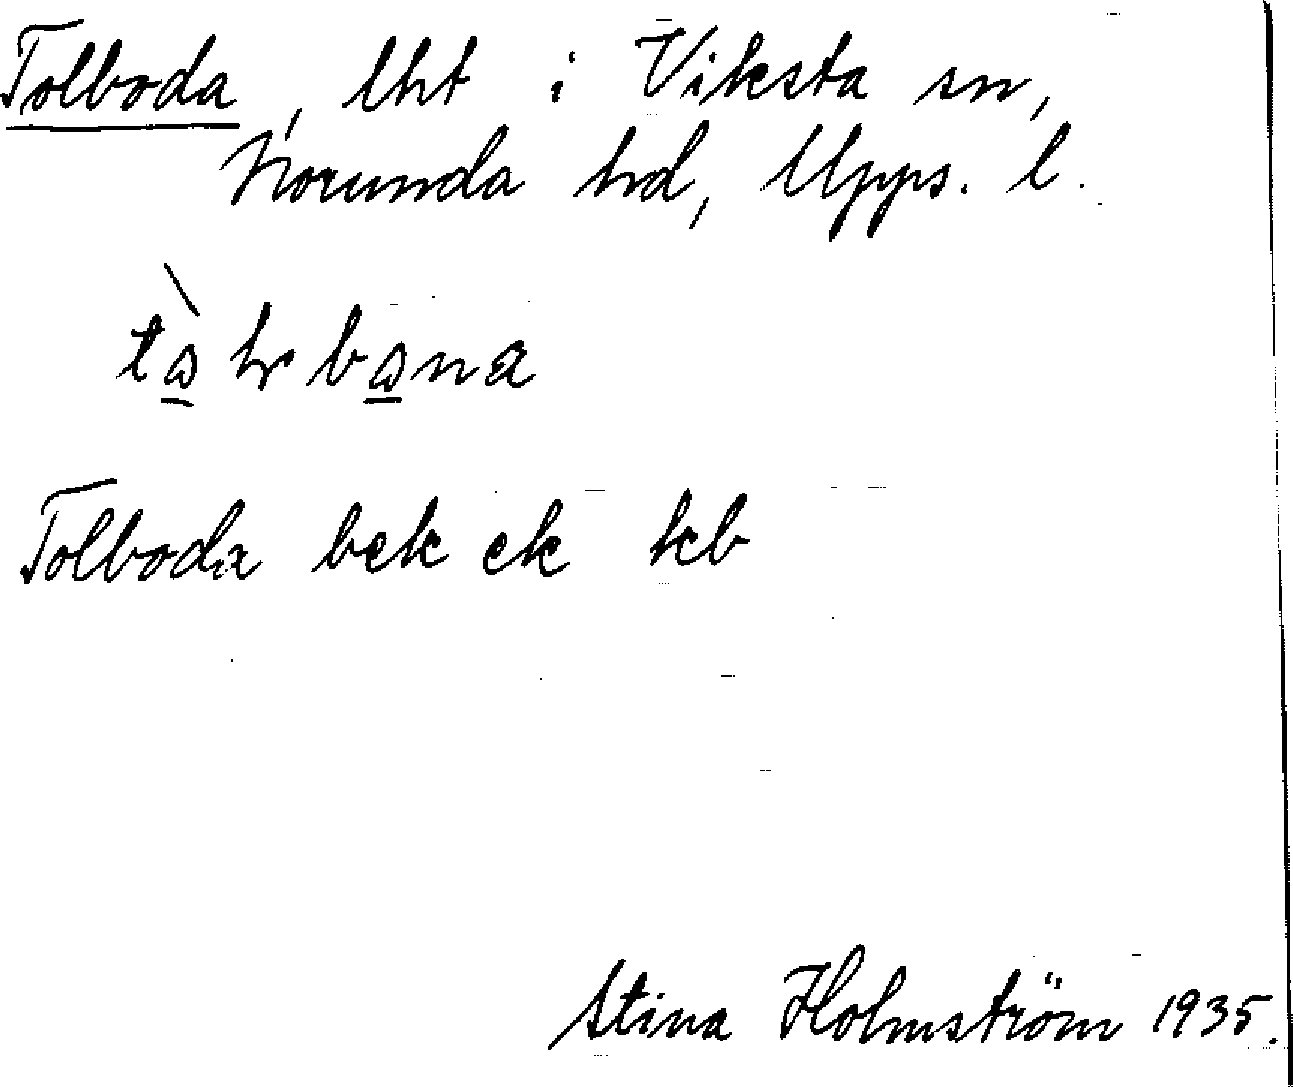 Tolboda, lht i Viksta sn,
Norunda hd, Upps. l.
Tolboda bek ek kb
Stina Holmström 1935.